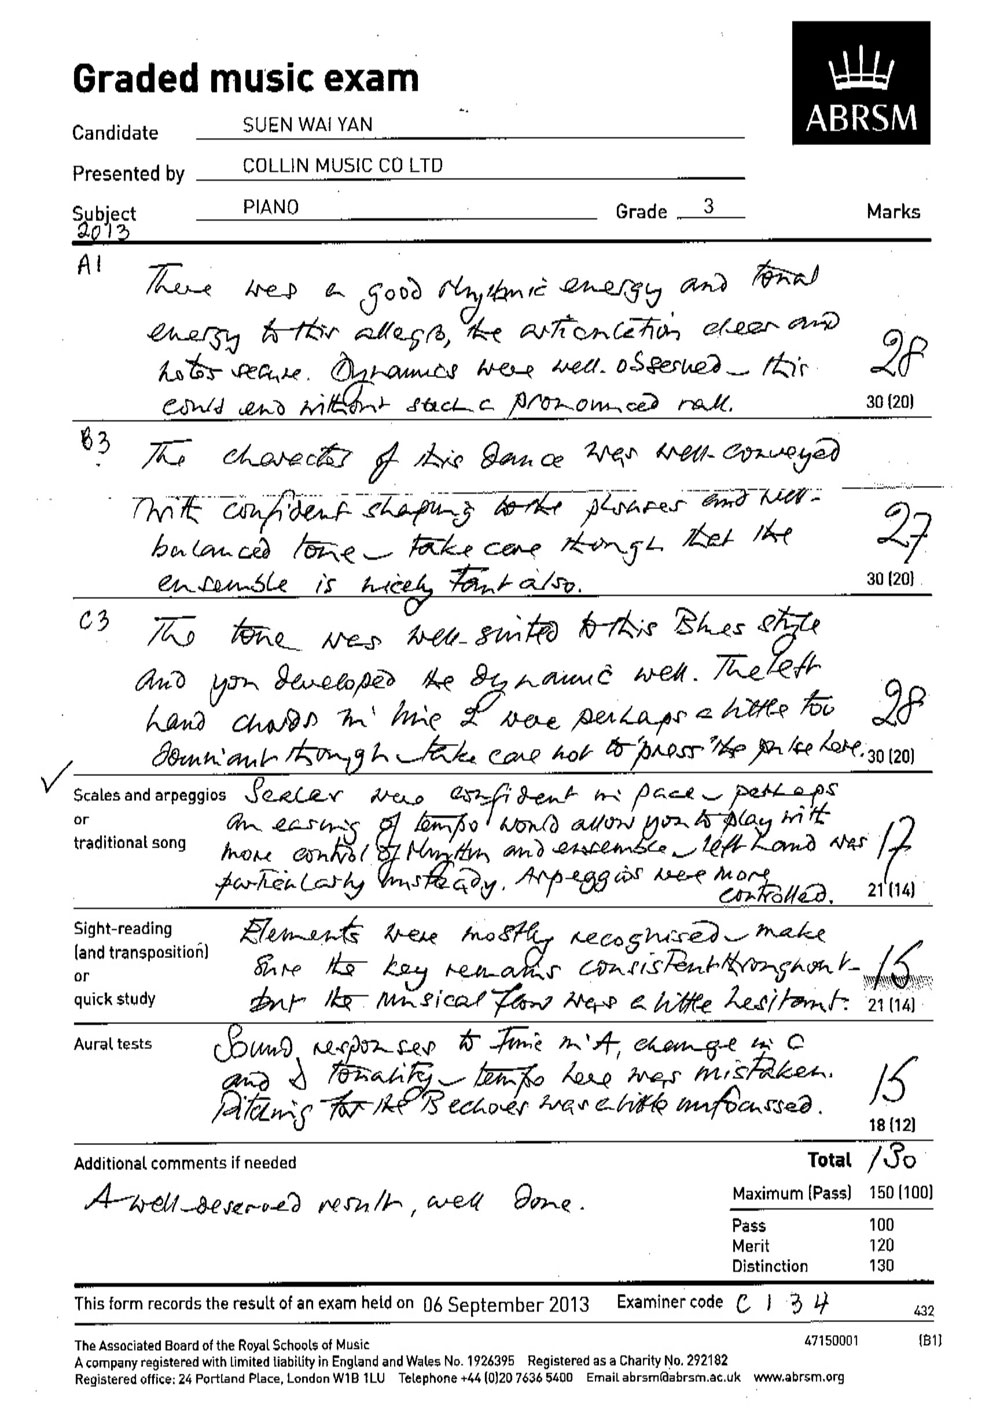 Graded music exam
ABRSM
Candidate SUEN WAI YAN
Presented by COLLIN MUSIC CO LTD
Subject PIANO Grade 3 Marks
2013
A1 There was a good rhythmic energy and tonal
energy to this allegro, the articulation clear and
notes secure. Dynamics were well-observed – this
could end without such a pronounced rall.
28
30 (20)
B3 The character of this dance was well-conveyed
with confident shaping to the phrases and well-
balanced tone – take care though that the
ensemble is nicely taut also.
27
30 (20)
C3 The tone was well-suited to this Blues style
and you developed the dynamic well. The left
hand chords in line 2 were perhaps a little too
dominant though – take care not to 'press' the pulse here.
28
30 (20)
Scales and arpeggios
or
traditional song
Scales were confident in pace – perhaps
an easing of tempo would allow you to play with
more control of rhythm and ensemble – left hand was
particularly unsteady. Arpeggios were more
controlled.
17
21 (14)
Sight-reading
(and transposition)
or
quick study
Elements were mostly recognised – make
sure the key remains consistent throughout –
but the musical flow was a little hesitant.
15
21 (14)
Aural tests
Sound responses to time in A, change in C
and D tonality – tempo here was mistaken.
Pitching for the B echoes was a little unfocussed.
15
18 (12)
Additional comments if needed
A well-deserved result, well done.
Total 130
Maximum (Pass) 150 (100)
Pass 100
Merit 120
Distinction 130
This form records the result of an exam held on 06 September 2013 Examiner code C 1 3 4
432
47150001 (B1)
The Associated Board of the Royal Schools of Music
A company registered with limited liability in England and Wales No. 1926395 Registered as a Charity No. 292182
Registered office: 24 Portland Place, London W1B 1LU Telephone +44 (0)20 7636 5400 Email abrsm@abrsm.ac.uk www.abrsm.org